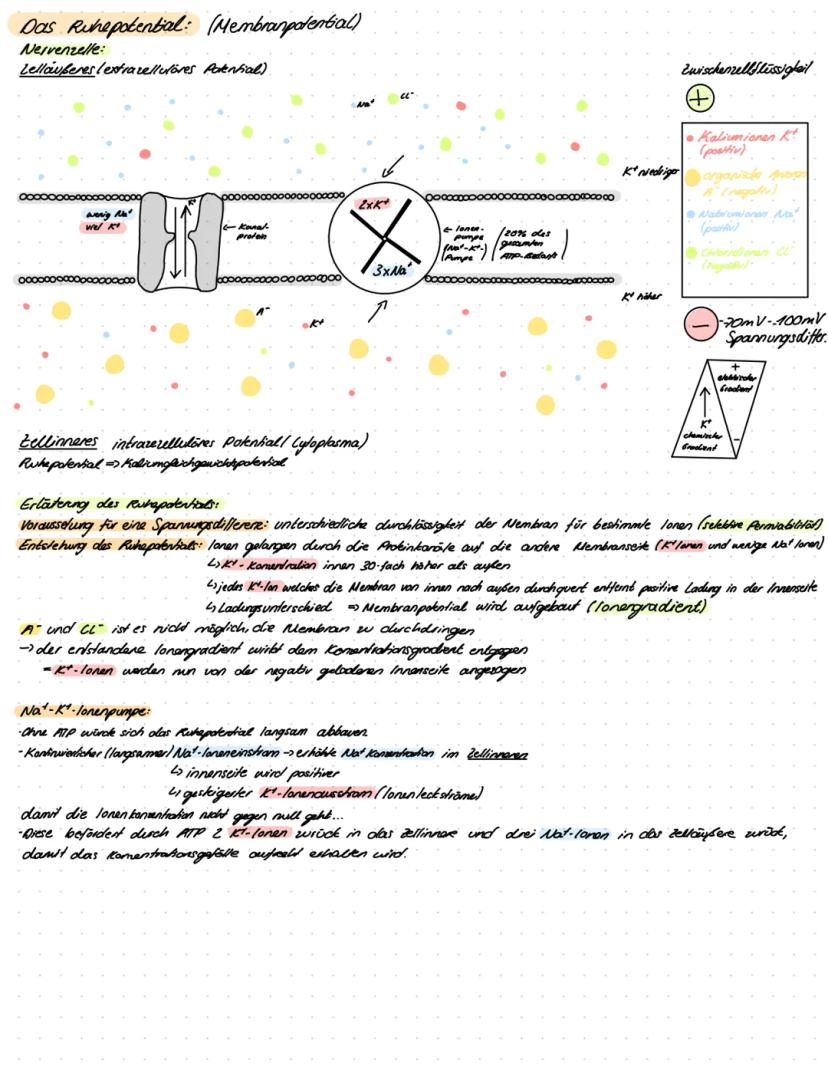 Das Ruhepotential: (Membranpotential)
Nervenzelle:
Zelläußeres (extrazelluläres Potential)
Zwischenzellflüssigkeit
+
Na⁺
Cl⁻
• Kaliumionen K⁺
(positiv)
organische Anionen
A⁻ (negativ)
• Natriumionen Na⁺
(positiv)
• Chloridionen Cl⁻
(negativ)
K⁺ niedriger
wenig Na⁺
viel K⁺
K⁺
← Kanal-
protein
2xK⁺
3xNa⁺
← Ionen-
pumpe
(Na⁺-K⁺-
Pumpe)
(20% des
gesamten
ATP-Bedarfs)
K⁺ höher
A⁻
K⁺
−
-70mV - -100mV
Spannungsdiffer.
+
elektrischer
Gradient
K⁺
chemischer
Gradient
-
Zellinneres intrazelluläres Potential (Cytoplasma)
Ruhepotential => Kaliumgleichgewichtspotential
Erläuterung des Ruhepotentials:
Voraussetzung für eine Spannungsdifferenz: unterschiedliche durchlässigkeit der Membran für bestimmte Ionen (selektive Permiabilität)
Entstehung des Ruhepotentials: Ionen gelangen durch die Proteinkanäle auf die andere Membranseite (K⁺Ionen und wenige Na⁺ Ionen)
↳ K⁺-Konzentration innen 30-fach höher als außen
↳ jedes K⁺-Ion welches die Membran von innen nach außen durchquert entfernt positive Ladung in der Innenseite
↳ Ladungsunterschied => Membranpotential wird aufgebaut (Ionengradient)
A⁻ und Cl⁻ ist es nicht möglich, die Membran zu durchdringen
→ der entstandene Ionengradient wirkt dem Konzentrationsgradient entgegen
= K⁺-Ionen werden nun von der negativ geladenen Innenseite angezogen
Na⁺-K⁺-Ionenpumpe:
· Ohne ATP würde sich das Ruhepotential langsam abbauen
- Kontinuierlicher (langsamer) Na⁺-Ioneneinstrom → erhöhte Na⁺ Konzentration im Zellinneren
↳ innenseite wird positiver
↳ gesteigerter K⁺-Ionenausstrom (Ionenleckströme)
damit die Ionenkonzentration nicht gegen null geht...
· Diese befördert durch ATP 2 K⁺-Ionen zurück in das Zellinnere und drei Na⁺-Ionen in das Zelläußere zurück,
damit das Konzentrationsgefälle aufrecht erhalten wird.